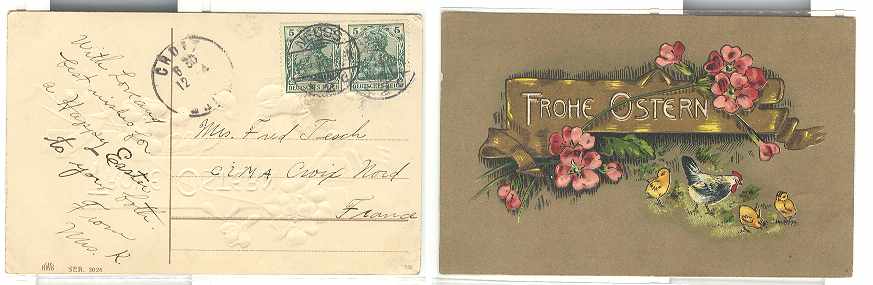 With Love and
best wishes for
a Happy Easter
to you both.
From
Mrs. K.
CROIX
5
5
DEUTSCHES REICH
Mrs. Fred Tesch
CIMA, Croix Nord
France
SER. 3024
FROHE OSTERN